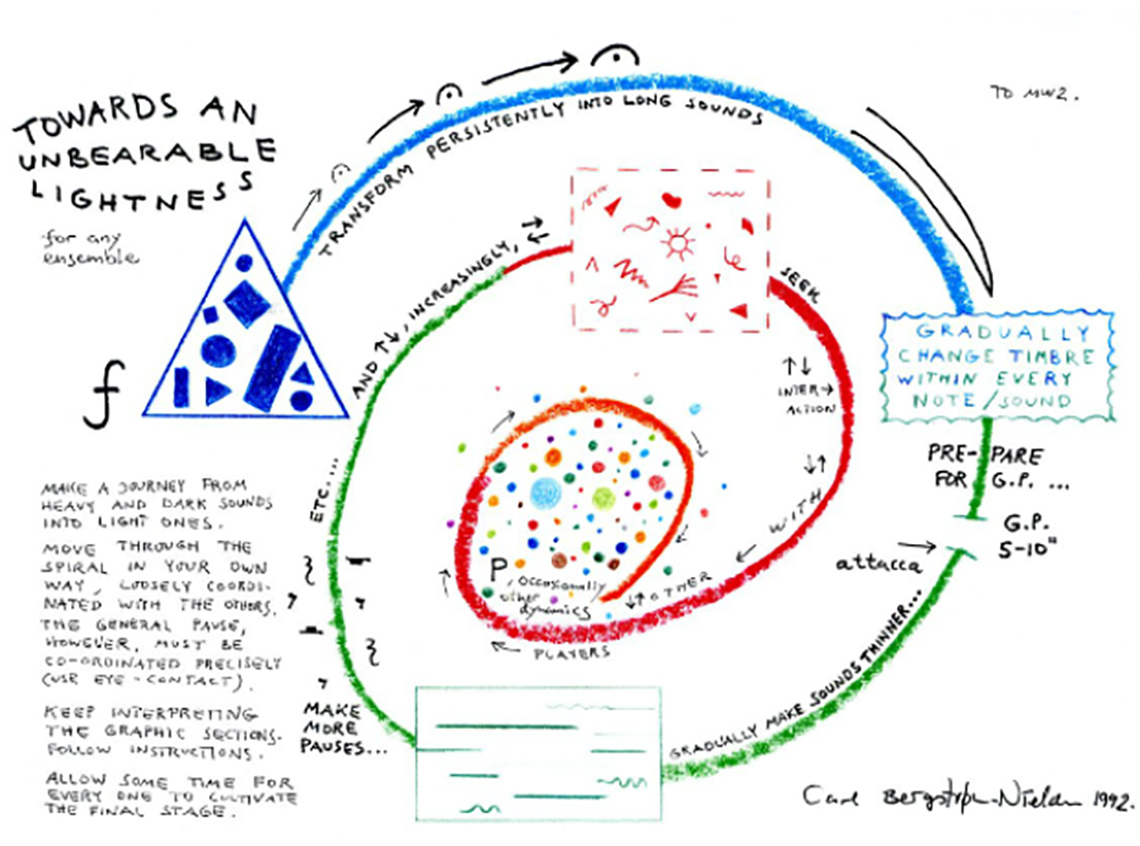 TOWARDS AN
UNBEARABLE
LIGHTNESS
for any
ensemble
TO MW2.
f
TRANSFORM PERSISTENTLY INTO LONG SOUNDS
GRADUALLY
CHANGE TIMBRE
WITHIN EVERY
NOTE/SOUND
PRE-PARE
FOR G.P. ...
G.P.
5-10"
attacca
GRADUALLY MAKE SOUNDS THINNER...
MAKE
MORE
PAUSES...
ETC....
AND ↑↓, INCREASINGLY,
SEEK
INTER→
ACTION
WITH
OTHER
PLAYERS
P, occasionally
other
dynamics
MAKE A JOURNEY FROM
HEAVY AND DARK SOUNDS
INTO LIGHT ONES.
MOVE THROUGH THE
SPIRAL IN YOUR OWN
WAY, LOOSELY COORDI-
NATED WITH THE OTHERS.
THE GENERAL PAUSE,
HOWEVER, MUST BE
CO-ORDINATED PRECISELY
(USE EYE-CONTACT).
KEEP INTERPRETING
THE GRAPHIC SECTIONS.
FOLLOW INSTRUCTIONS.
ALLOW SOME TIME FOR
EVERY ONE TO CULTIVATE
THE FINAL STAGE.
Carl Bergstrøm-Nielsen 1992.